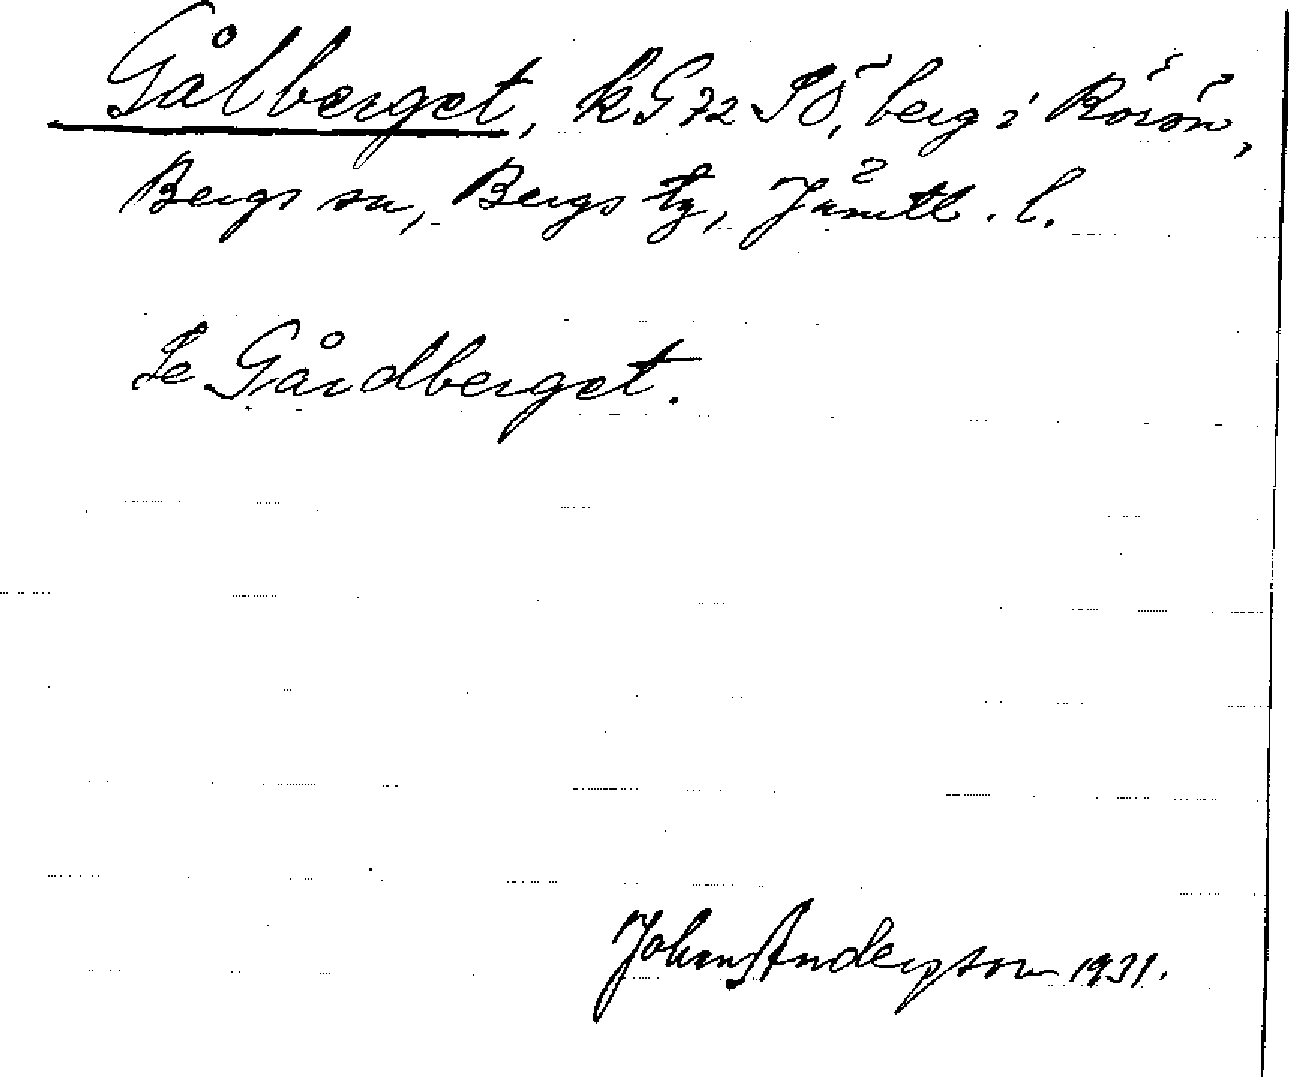 Gålberget, k G 72 SÖ, berg i Rörön,
Bergs sn, Bergs tg, Jämtl. l.
Se Gårdberget.
Johan Anderson 1931.